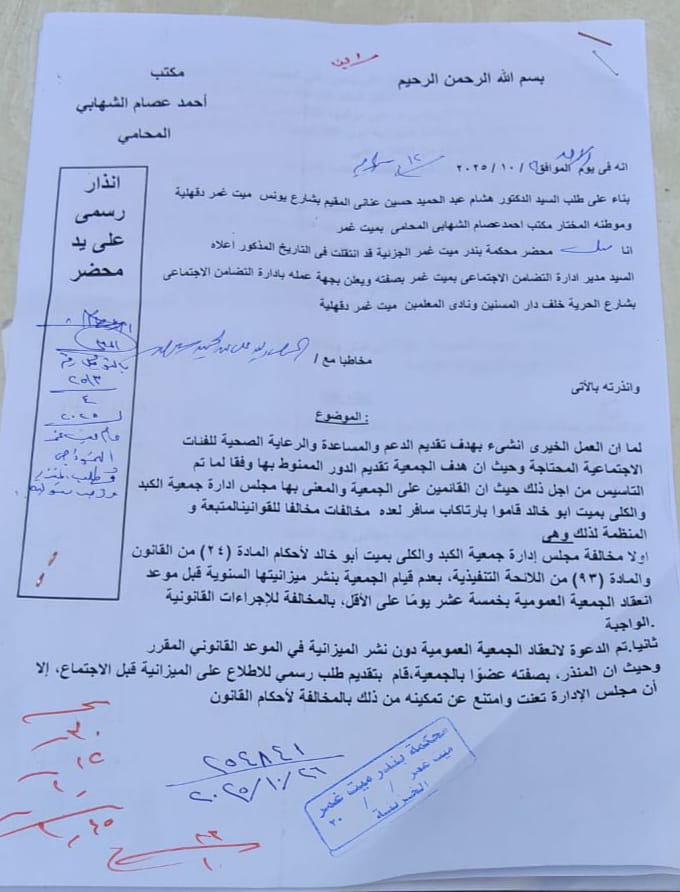 بسم الله الرحمن الرحيم
مكتب
أحمد عصام الشهابي
المحامي
انه فى يوم الاحد الموافق ٢٦ / ١٠ / ٢٠٢٥
بناء على طلب السيد الدكتور هشام عبد الحميد حسين عنانى المقيم بشارع يونس ميت غمر دقهلية
وموطنه المختار مكتب احمدعصام الشهابى المحامى بميت غمر
انا محضر محكمة بندر ميت غمر الجزئية قد انتقلت فى التاريخ المذكور أعلاه
السيد مدير ادارة التضامن الاجتماعى بميت غمر بصفته ويعلن بجهة عمله بادارة التضامن الاجتماعى
بشارع الحرية خلف دار المسنين ونادى المعلمين ميت غمر دقهلية
مخاطبا مع /
وانذرته بالأتى
انذار
رسمى
على يد
محضر
الموضوع :
لما ان العمل الخيرى انشىء بهدف تقديم الدعم والمساعدة والرعاية الصحية للفئات
الاجتماعية المحتاجة وحيث ان هدف الجمعية تقديم الدور الممنوط بها وفقا لما تم
التاسيس من اجل ذلك حيث ان القائمين على الجمعية والمعنى بها مجلس ادارة جمعية الكبد
والكلى بميت ابو خالد قاموا بارتاكاب سافر لعده مخالفات مخالفا للقوانينالمتبعة و
المنظمة لذلك وهى
اولا مخالفة مجلس إدارة جمعية الكبد والكلى بميت أبو خالد لأحكام المادة (٢٤) من القانون
والمادة (٩٣) من اللائحة التنفيذية، بعدم قيام الجمعية بنشر ميزانيتها السنوية قبل موعد
انعقاد الجمعية العمومية بخمسة عشر يومًا على الأقل، بالمخالفة للإجراءات القانونية
.الواجبة
ثانيا.تم الدعوة لانعقاد الجمعية العمومية دون نشر الميزانية في الموعد القانوني المقرر
وحيث ان المنذر، بصفته عضوًا بالجمعية،قام بتقديم طلب رسمي للاطلاع على الميزانية قبل الاجتماع، إلا
أن مجلس الإدارة تعنت وامتنع عن تمكينه من ذلك بالمخالفة لأحكام القانون
٢٥٤٨٤١
٢٠٢٥/١٠/٢٦
محكمة بندر ميت غمر
ميت غمر / / ٢٠
الجزئية